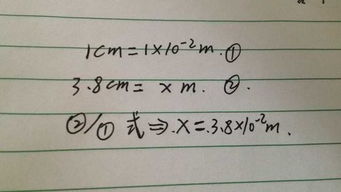 1cm=1×10⁻²m.①
3.8cm= x m. ②.
②/① 式⇒.X=3.8×10⁻²m.